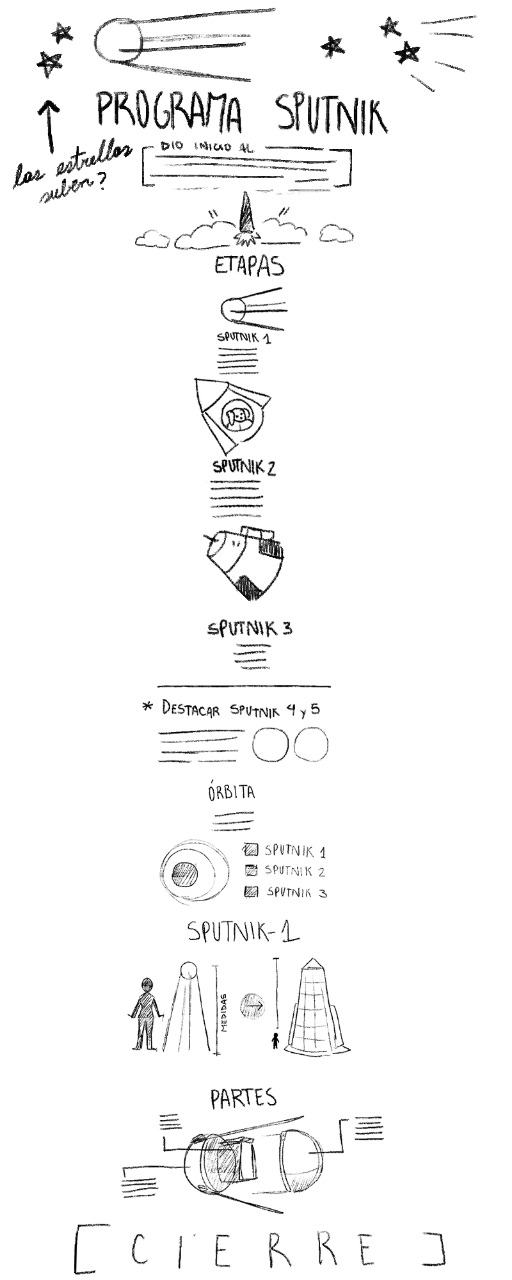 PROGRAMA SPUTNIK
DIO INICIO AL
las estrellas
suben?
ETAPAS
SPUTNIK 1
SPUTNIK 2
SPUTNIK 3
* DESTACAR SPUTNIK 4 y 5
ÓRBITA
SPUTNIK 1
SPUTNIK 2
SPUTNIK 3
SPUTNIK-1
MEDIDAS
PARTES
[CIERRE]